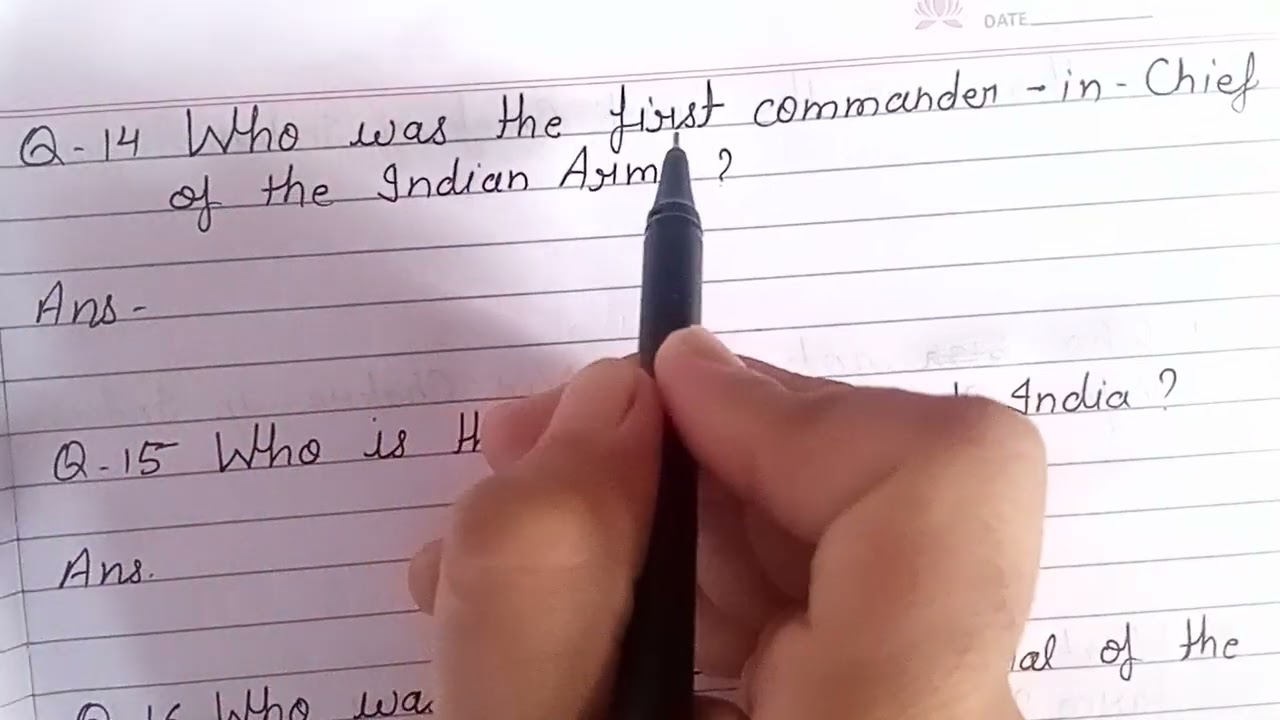 DATE
Q-14 Who was the first commander-in-Chief
of the Indian Arm ?
Ans-
Q.15 Who is India ?
Ans.
Who wa of the